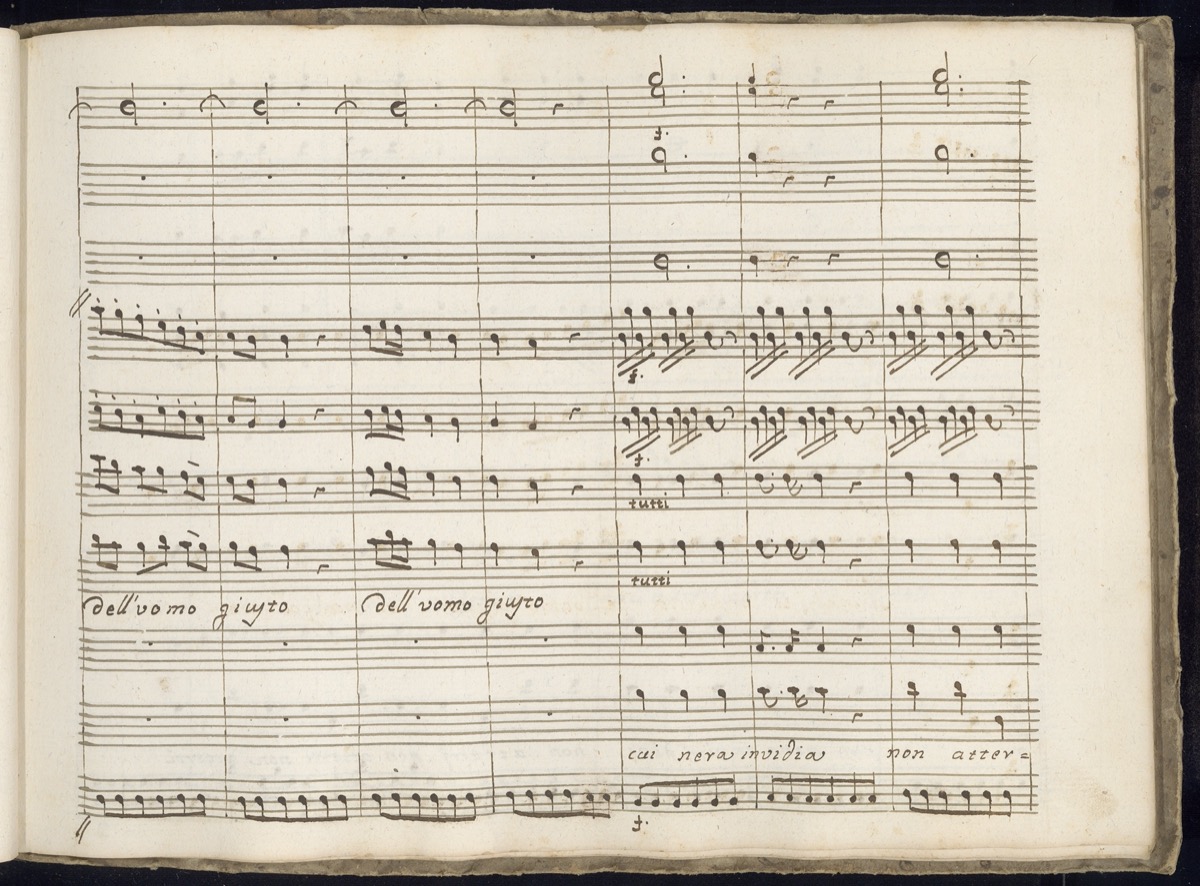 f.
f.
f.
tutti
tutti
dell'uomo giusto dell'uomo giusto
cui nera invidia non atter=
f.